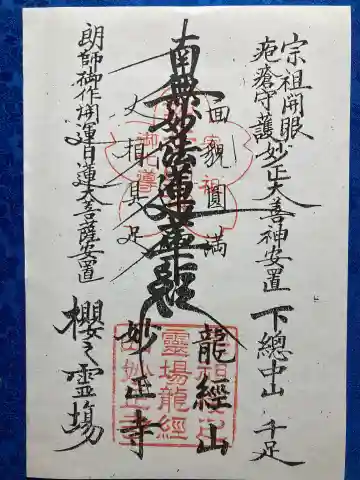 宗祖開眼
疱瘡守護妙正大善神安置
下總中山 千足
面貌圓満
龍經山
南無妙法蓮華經
妙正寺
丈相具足
朗師御作開運日蓮大菩薩安置
櫻之霊場
靈場龍經